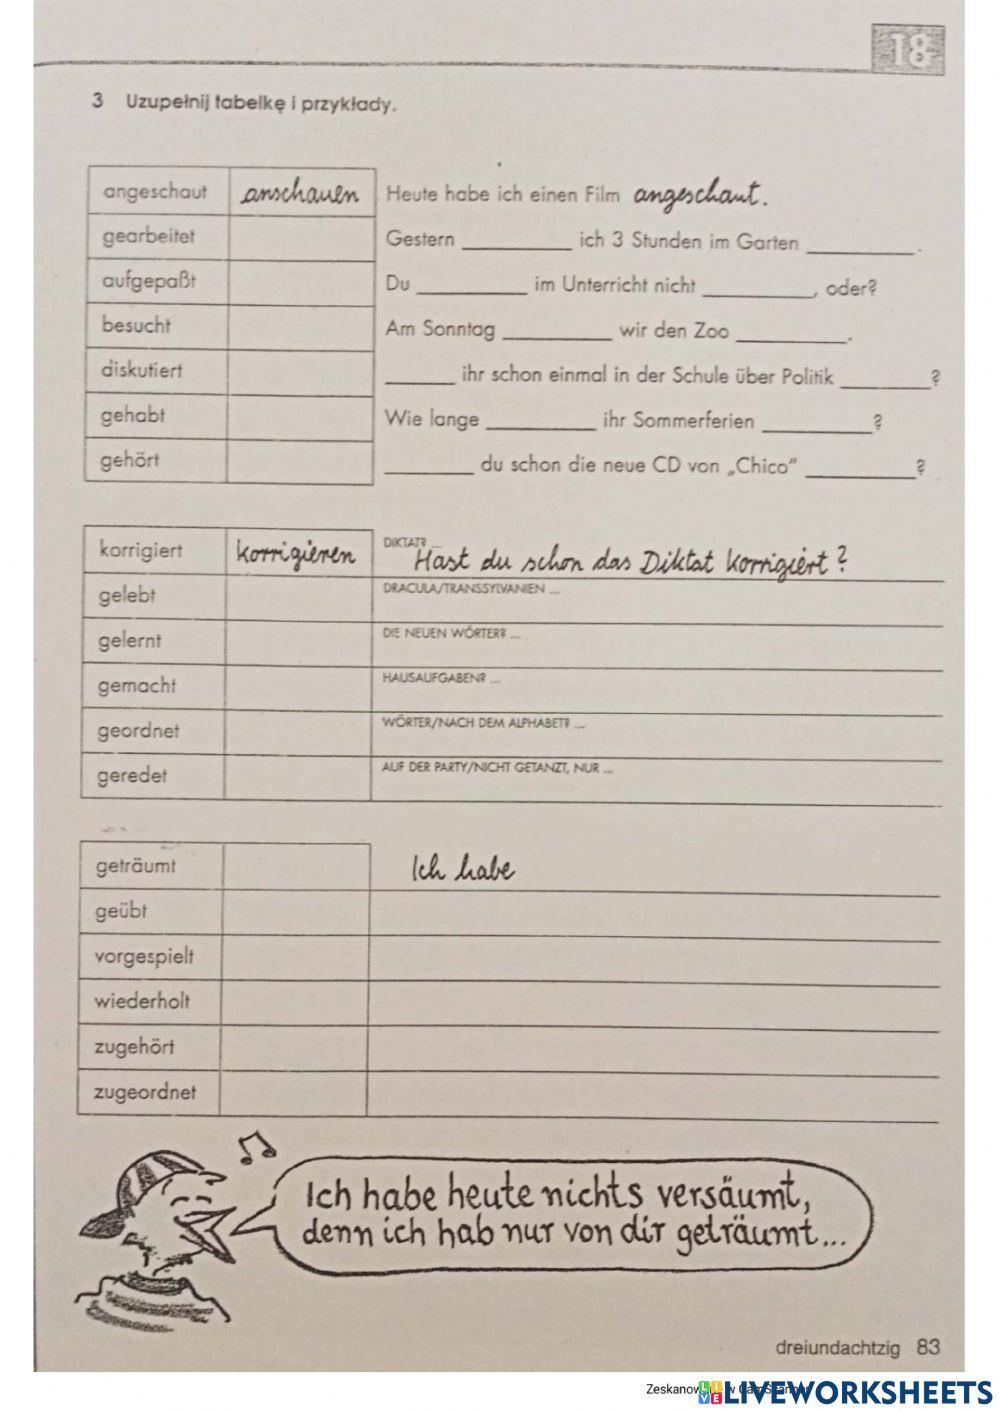 18
3 Uzupełnij tabelkę i przykłady.
angeschaut anschauen Heute habe ich einen Film angeschaut.
gearbeitet Gestern __________ ich 3 Stunden im Garten __________.
aufgepaßt Du __________ im Unterricht nicht __________, oder?
besucht Am Sonntag __________ wir den Zoo __________.
diskutiert ______ ihr schon einmal in der Schule über Politik ________?
gehabt Wie lange __________ ihr Sommerferien __________?
gehört ________ du schon die neue CD von „Chico“ __________?
korrigiert korrigieren DIKTAT? ... Hast du schon das Diktat korrigiert?
gelebt DRACULA/TRANSSYLVANIEN ...
gelernt DIE NEUEN WÖRTER? ...
gemacht HAUSAUFGABEN? ...
geordnet WÖRTER/NACH DEM ALPHABET? ...
geredet AUF DER PARTY/NICHT GETANZT, NUR ...
geträumt Ich habe
geübt
vorgespielt
wiederholt
zugehört
zugeordnet
Ich habe heute nichts versäumt,
denn ich hab nur von dir geträumt...
dreiundachtzig 83
LIVEWORKSHEETS